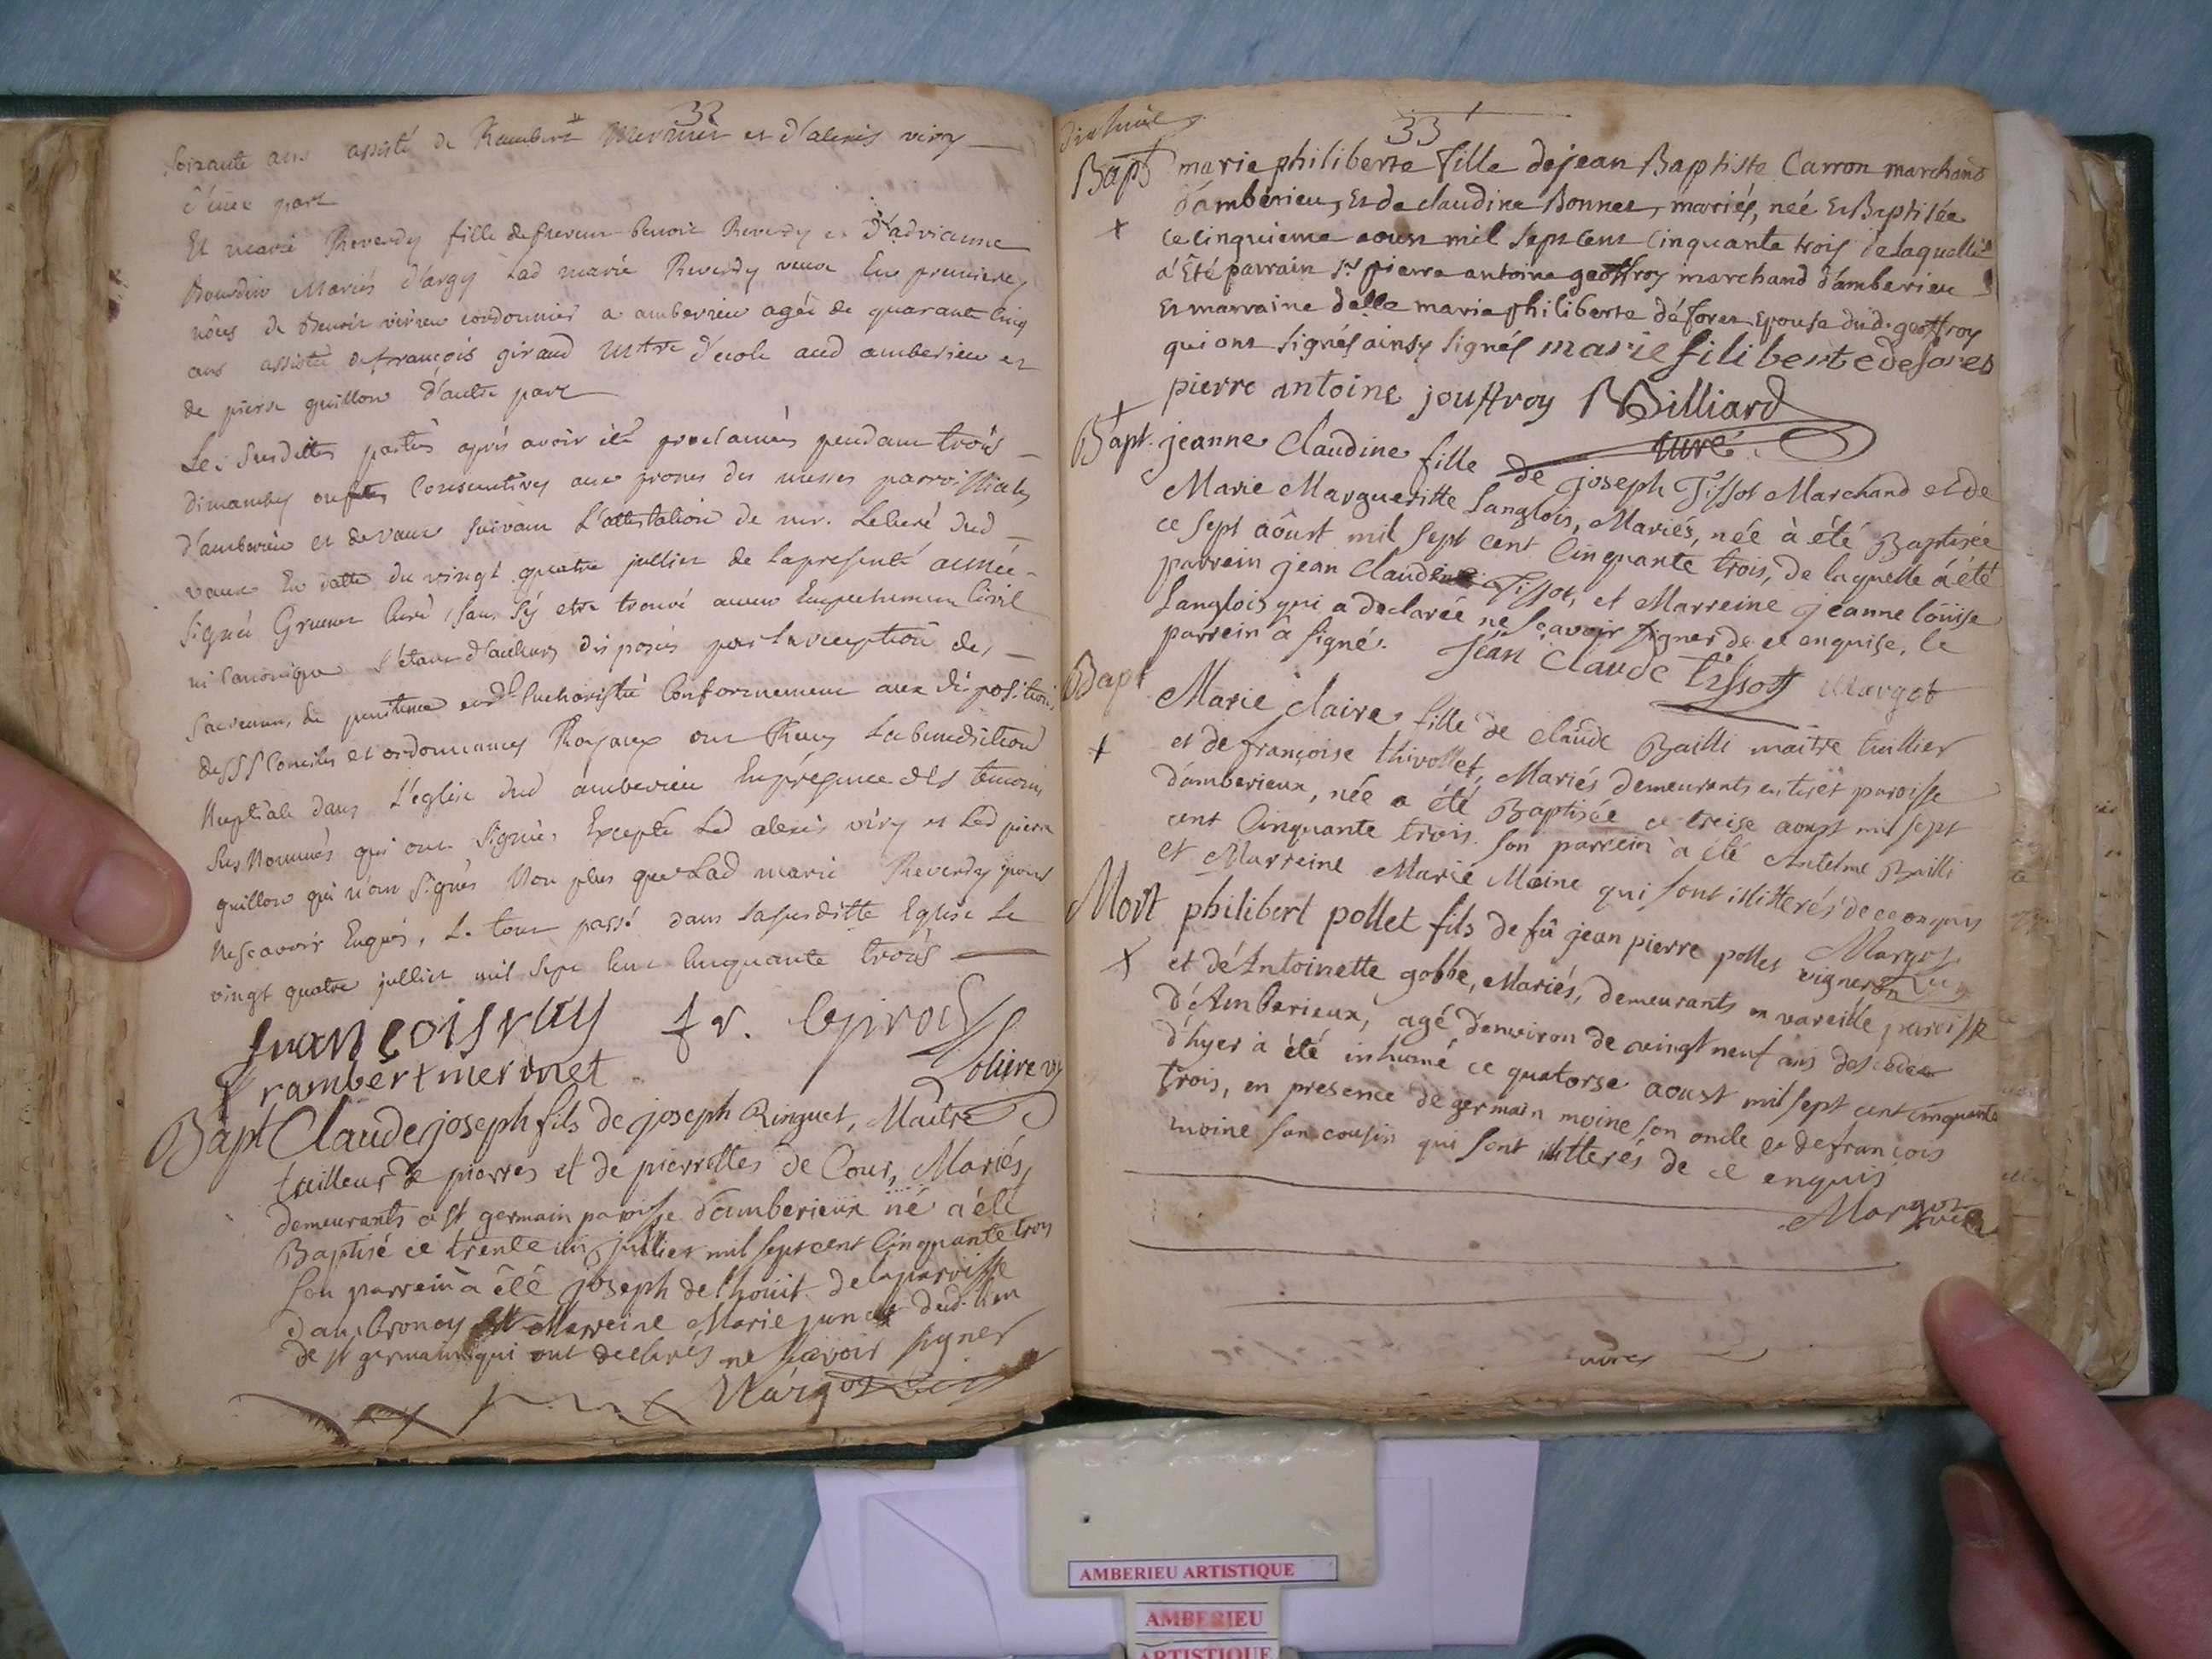 32
soixante ans assisté de Rambert Mermet et d'alexis viry
d'une part
Et marie Reverdy fille de Benoit Reverdy et d'adrianne
Bourdin Mariés d'argy Lad marie Reverdy veuve En premieres
nôces de Benoit cordonnier a amberieu agée de quarante cinq
ans assistée de françois giraud Mtre d'ecole aud amberieu et
de pierre guillon d'autre part
Les Susdittes parties après avoir été proclamées pendant trois
dimanches consecutives aux prones des messes parroissiales
d'amberieu et de vaux suivant L'attestation de mr. Le curé dud
vaux En datte du vingt quatre juillier de la presente année
Signé curé, sans s'y etre trouvé aucun Empechement Civil
ni Canonique S'étant d'ailleurs disposés par la reception des
Sacremens de penitence et d'Eucharistie Conformement aux dispositions
des SS Conciles et ordonnances Royaux ont Reçu La benediction
Nuptiale dans L'eglise dud amberieu En présence des temoins
Sus Nommés qui ont Signés, Excepté Led alexis viry et Led pierre
guillon qui n'ont Signés Non plus que Lad marie Reverdy pour
Ne scavoir Enquis, Le tout passé dans la susditte Eglise Le
vingt quatre julliet mil Sept Cent Cinquante trois
françois
rambert mermet
Bapt Claude joseph fils de joseph Ringuet, Maitre
tailleur de pierres et de pierrettes de Cour, Mariés,
demeurants a st germain paroisse d'amberieux né a été
Baptisé ce trente un juillier mil sept cent Cinquante trois
Son parrein a été joseph de thouit de la paroisse
d'ambronay et Marreine Marie dud. lieu
de st germain qui ont declarés ne sçavoir signer
Margot
33
Bapt marie philiberte fille de jean Baptiste Carron marchand
d'amberieu, Et de claudine Bonnet, mariés, neé Et Baptisée
Le cinquieme aoust mil Sept Cent Cinquante trois de laquelle
a Eté parrain Sr pierre antoine geoffroy marchand d'amberieu
Et marraine delle marie philiberte déforez Epouse dud. geoffroy
qui ont signés ainsy signés marie filiberte defores
pierre antoine jouffroy Billiard
curé
Bapt. jeanne Claudine fille de joseph Tissot Marchand et de
Marie Margueritte Langlois, Mariés, née à été Baptisée
ce sept aôust mil sept cent Cinquante trois, de laquelle à été
parrein jean Claude Tissot, et Marreine jeanne loüise
Langlois qui a declarée ne sçavoir signer de ce enquise, le
parrein à signé. Jean Claude tissot Margot
Bapt Marie claire fille de claude Bailli maitre tuillier
et de françoise thivollet, Mariés demeurants en tiret paroisse
d'amberieux, née a été Baptisée ce treise aoust mil sept
cent Cinquante trois. son parrein à été Antelme Bailli
et Marreine Marie Moine qui sont illitterés de ce enquis
Margot
Mort philibert pollet fils de fû jean pierre pollet vigneron
et dé Antoinette gobbe, Mariés, demeurants en vareille paroisse
d'Amberieux, agé d'environ de vingt neuf ans descedé
d'hyer à été inhumé ce quatorse aoust mil sept cent cinquante
trois, en presence de germain moine son oncle et de françois
moine son cousin qui sont illitterés de ce enquis
Margot
AMBERIEU ARTISTIQUE
AMBERIEU
ARTISTIQUE